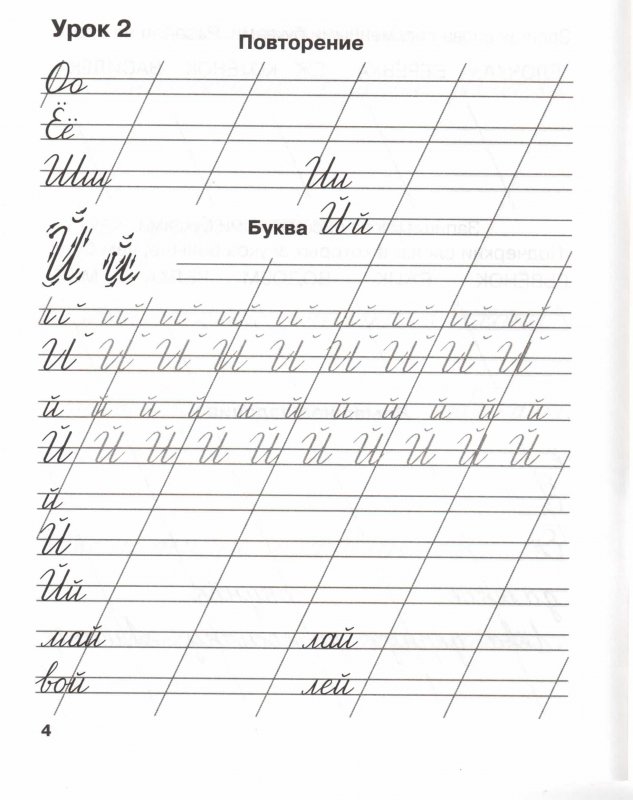 Урок 2
Повторение
Оо
Ёё
Шш Ии
Буква Йй
Й й
й й й й й й й й й
Й Й Й Й Й Й Й Й Й
й й й й й й й й й й й
Й Й Й Й Й Й Й Й Й Й
й
Й
Йй
май лай
вой лей
4